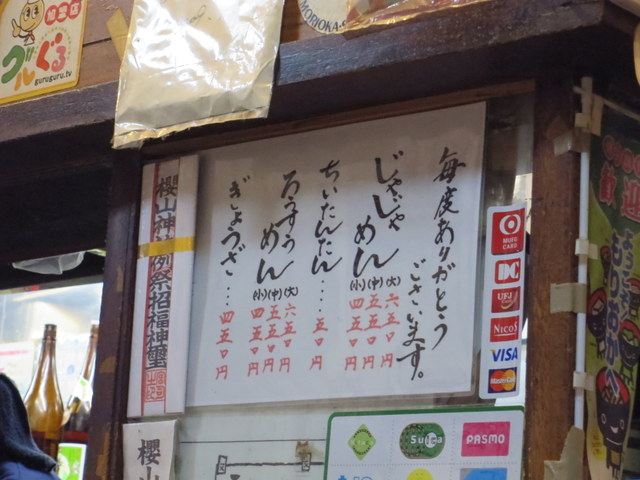 毎度ありがとう
ございます。
じゃじゃめん (大) 六五〇円
(中) 五五〇円
(小) 四五〇円
ちいたんたん… 五〇円
ろうすうめん (大) 六五〇円
(中) 五五〇円
(小) 四五〇円
ぎょうざ… 四五〇円
櫻山神社例祭招福神璽
櫻山
加盟店
グルぐる
guruguru.tv
MORIOKA
MUFG CARD
DC
UFJ
NICOS
VISA
MasterCard
Suica
PASMO
歓迎